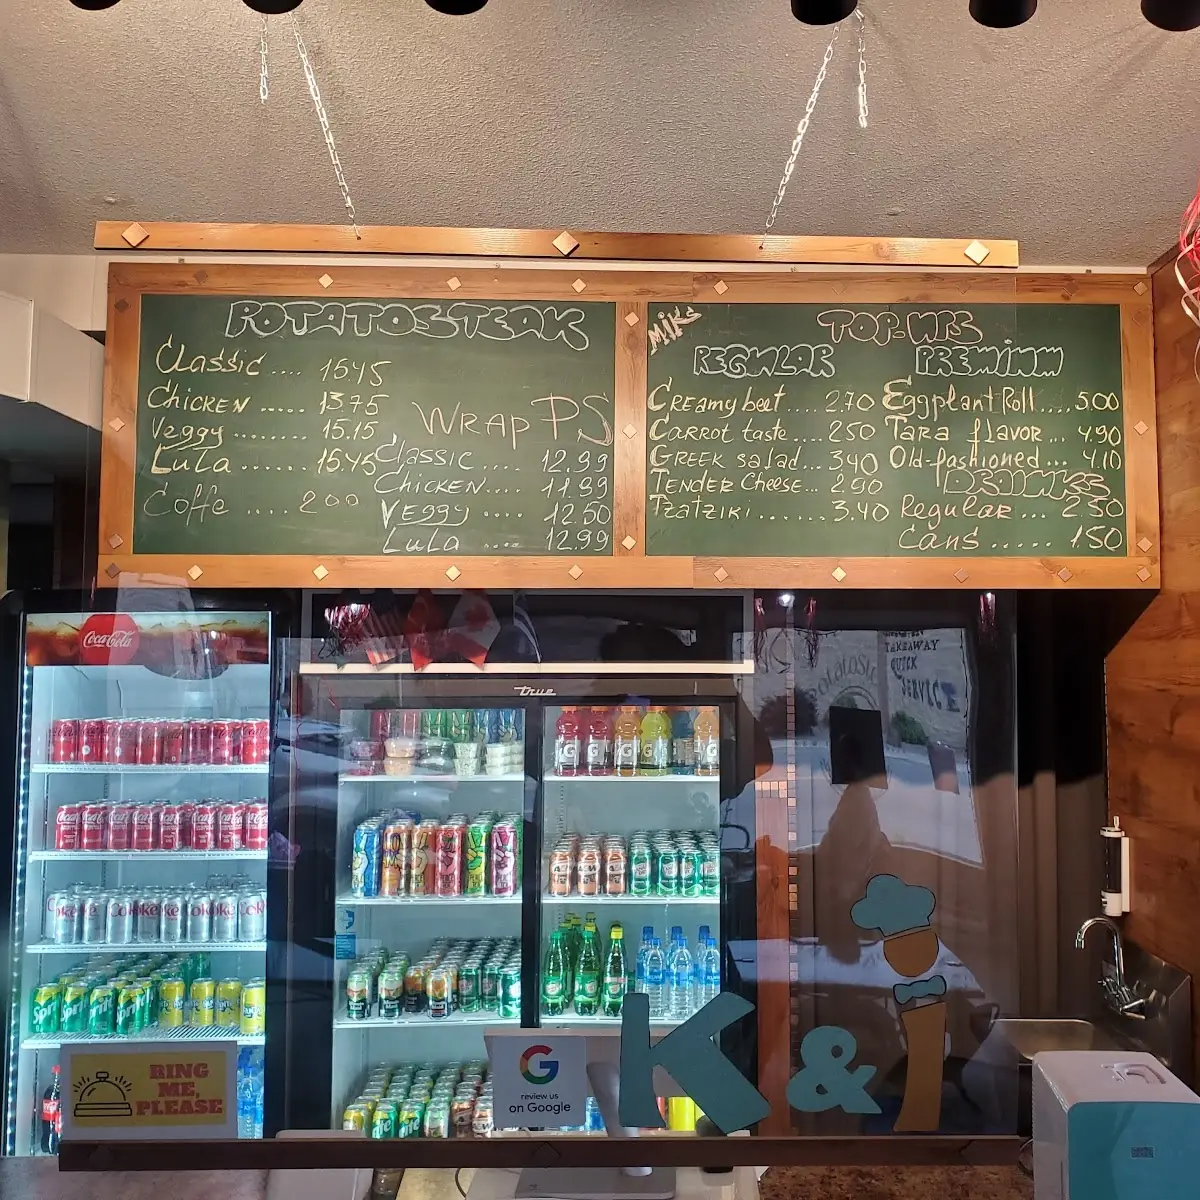 POTATOSTEAK
Classic .... 15.45
Chicken ..... 13.75
Veggy ........ 15.15
Lula ...... 15.45
Coffe .... 200
WRAP PS
Classic .... 12.99
Chicken.... 11.99
Veggy .... 12.50
Lula .... 12.99
MIKS
TOP-UPS
REGULAR
Creamy beet .... 2.70
Carrot taste .... 250
Greek salad... 3.40
Tender Cheese... 2.90
Tzatziki ....... 3.40
PREMIUM
Eggplant Roll .... 5.00
Tara flavor ... 4.90
Old-fashioned ... 4.10
DRINKS
Regular ... 2.50
Cans ..... 1.50
Coca-Cola
True
TAKEAWAY
QUICK
SERVICE
RING
ME,
PLEASE
G
review us
on Google
K & J